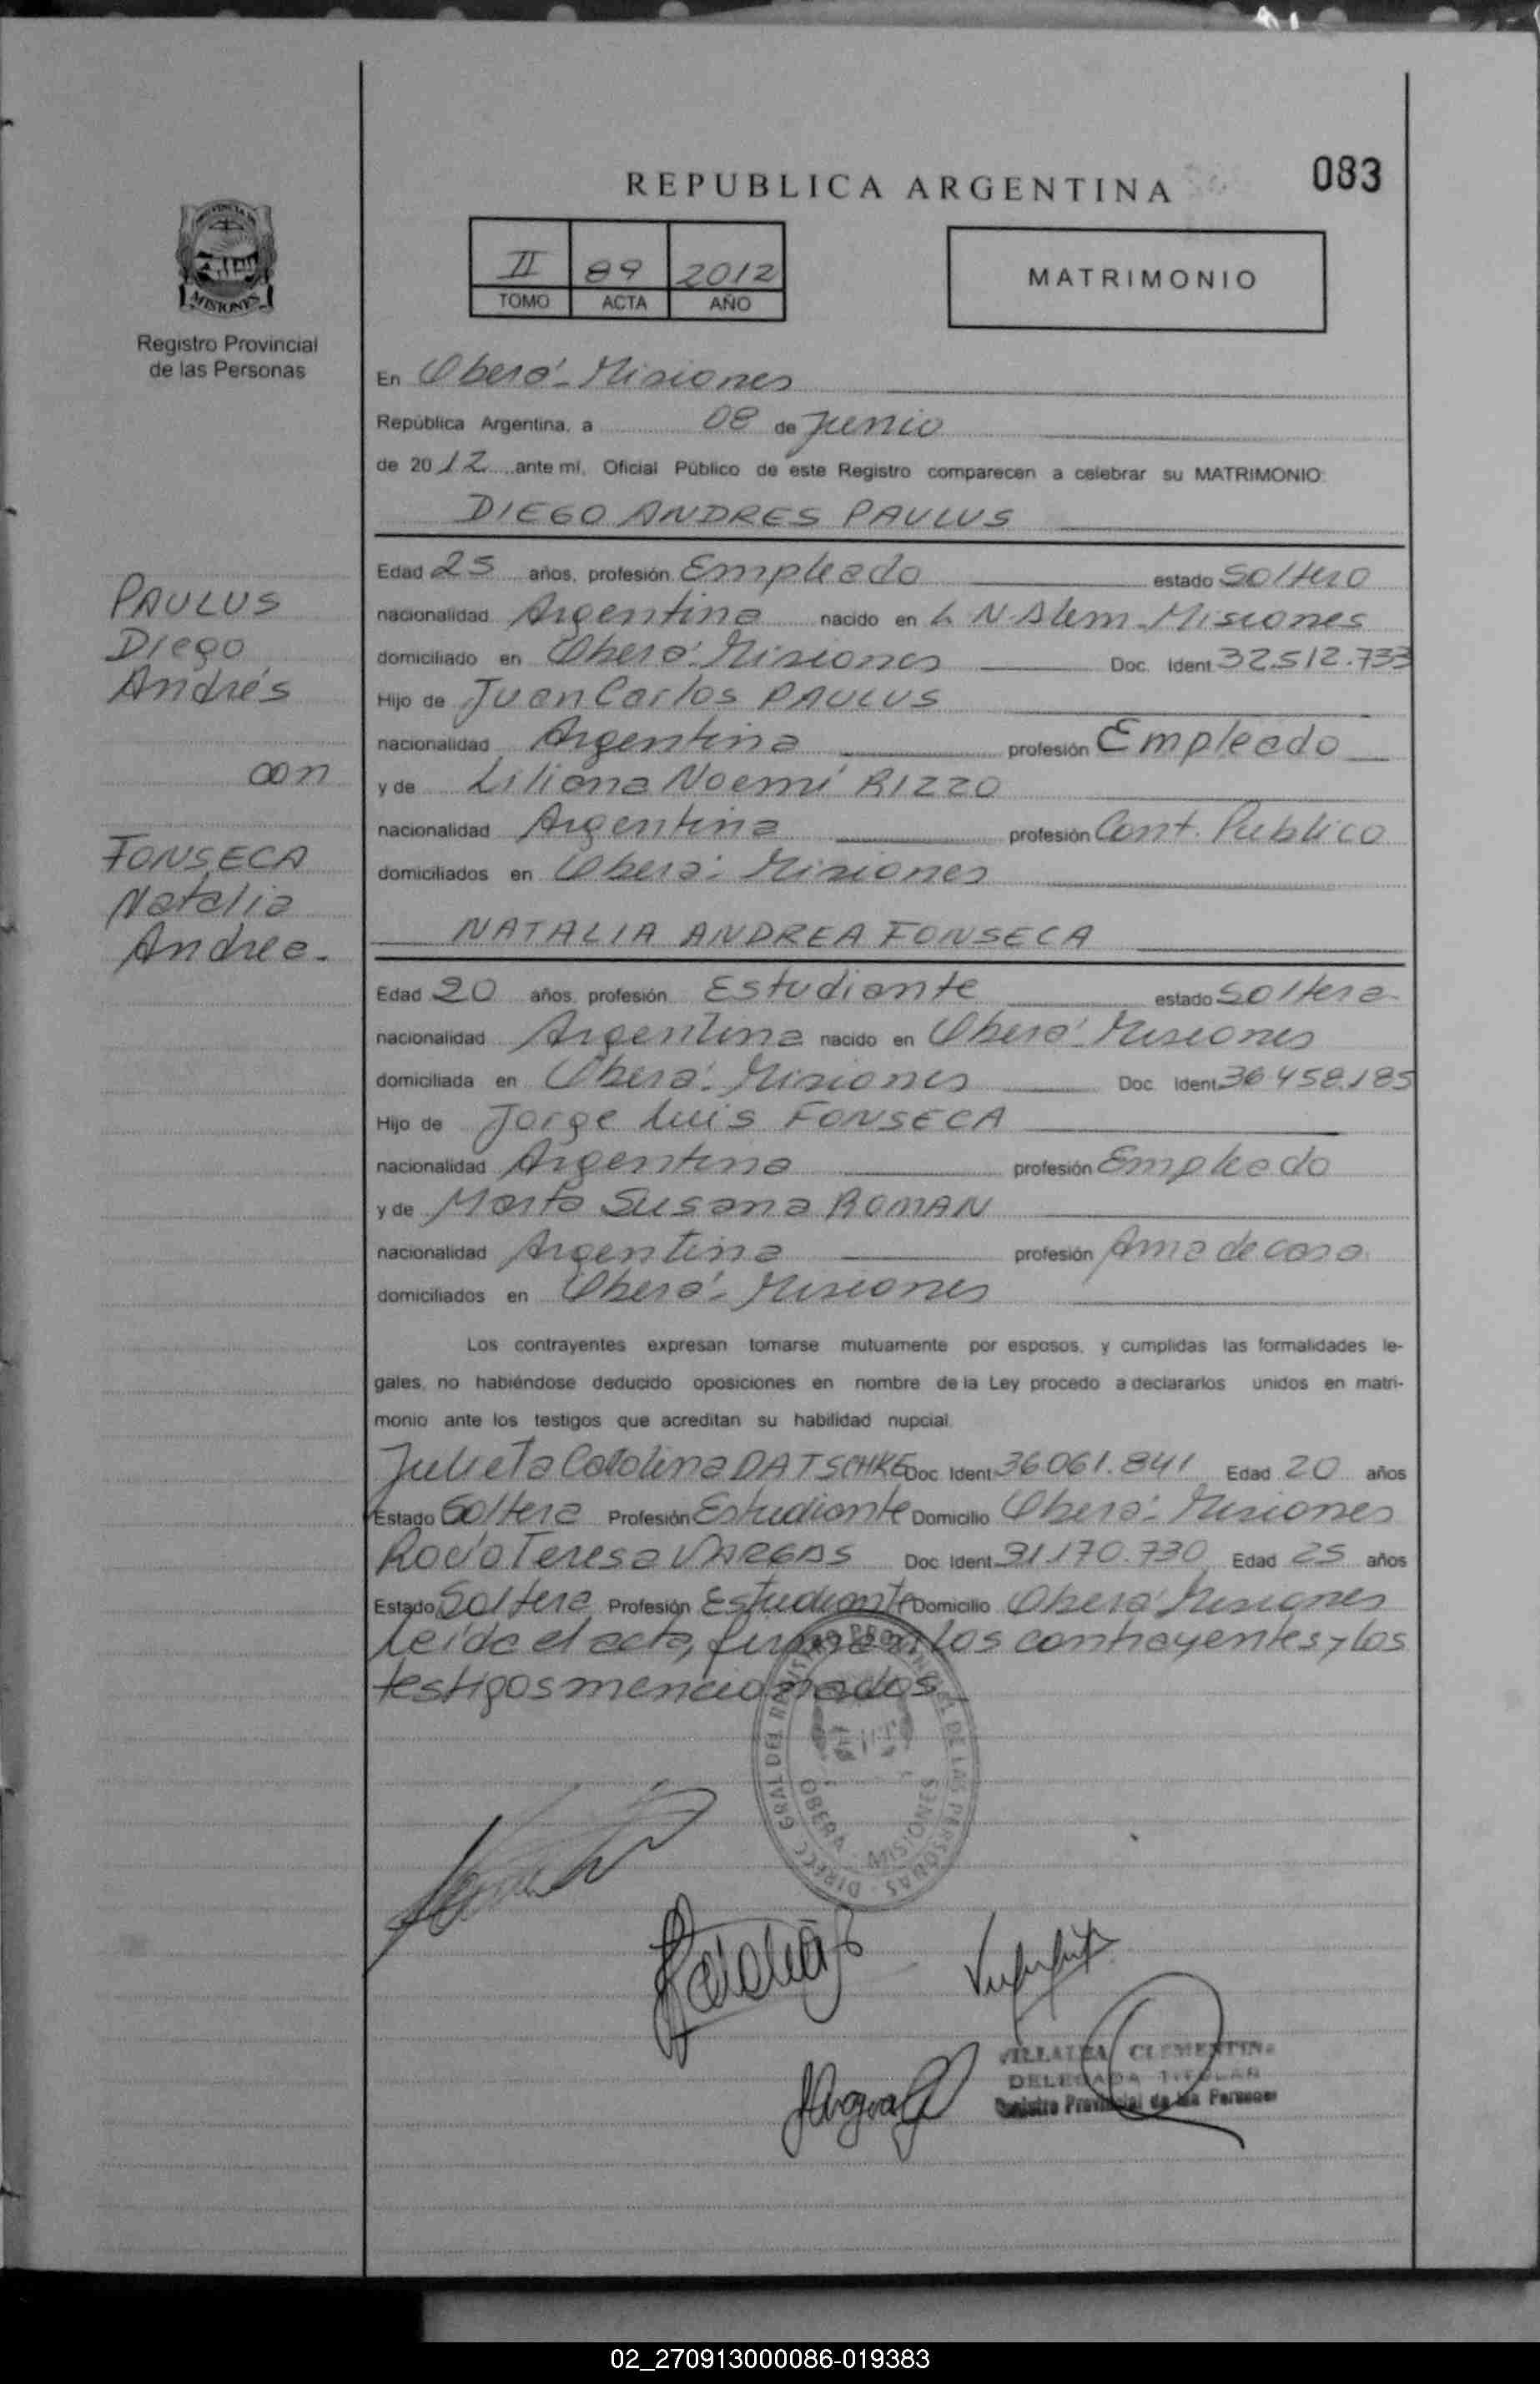 083
REPUBLICA ARGENTINA
II 89 2012
TOMO ACTA AÑO
MATRIMONIO
MISIONES
Registro Provincial
de las Personas
En Oberá - Misiones
República Argentina, a 08 de Junio
de 2012 ante mí, Oficial Público de este Registro comparecen a celebrar su MATRIMONIO:
DIEGO ANDRES PAULUS
PAULUS
Diego
Andrés
con
FONSECA
Natalia
Andrea.
Edad 25 años, profesión Empleado estado Soltero
nacionalidad Argentina nacido en L. N. Alem - Misiones
domiciliado en Oberá - Misiones Doc. Ident. 32.512.733
Hijo de Juan Carlos PAULUS
nacionalidad Argentina profesión Empleado
y de Liliana Noemí RIZZO
nacionalidad Argentina profesión Cont. Publico
domiciliados en Oberá - Misiones
NATALIA ANDREA FONSECA
Edad 20 años, profesión Estudiante estado Soltera
nacionalidad Argentina nacido en Oberá - Misiones
domiciliada en Oberá - Misiones Doc. Ident. 36.458.185
Hijo de Jorge Luis FONSECA
nacionalidad Argentina profesión Empleado
y de Marta Susana ROMAN
nacionalidad Argentina profesión Ama de casa
domiciliados en Oberá - Misiones
Los contrayentes expresan tomarse mutuamente por esposos, y cumplidas las formalidades le-
gales, no habiéndose deducido oposiciones en nombre de la Ley procedo a declararlos unidos en matri-
monio ante los testigos que acreditan su habilidad nupcial.
Julieta Carolina DATSCHKE Doc. Ident. 36.061.841 Edad 20 años
Estado Soltera Profesión Estudiante Domicilio Oberá - Misiones
Rocío Teresa VARGAS Doc. Ident. 31.170.730 Edad 25 años
Estado Soltera Profesión Estudiante Domicilio Oberá Misiones
Leída el acta, firman los contrayentes y los
testigos mencionados
DIRECC. GRAL DEL REGISTRO PROVINCIAL DE LAS PERSONAS
OBERA - MISIONES
VILLALBA CLEMENTINA
DELEGADA TITULAR
Registro Provincial de las Personas
02_270913000086-019383